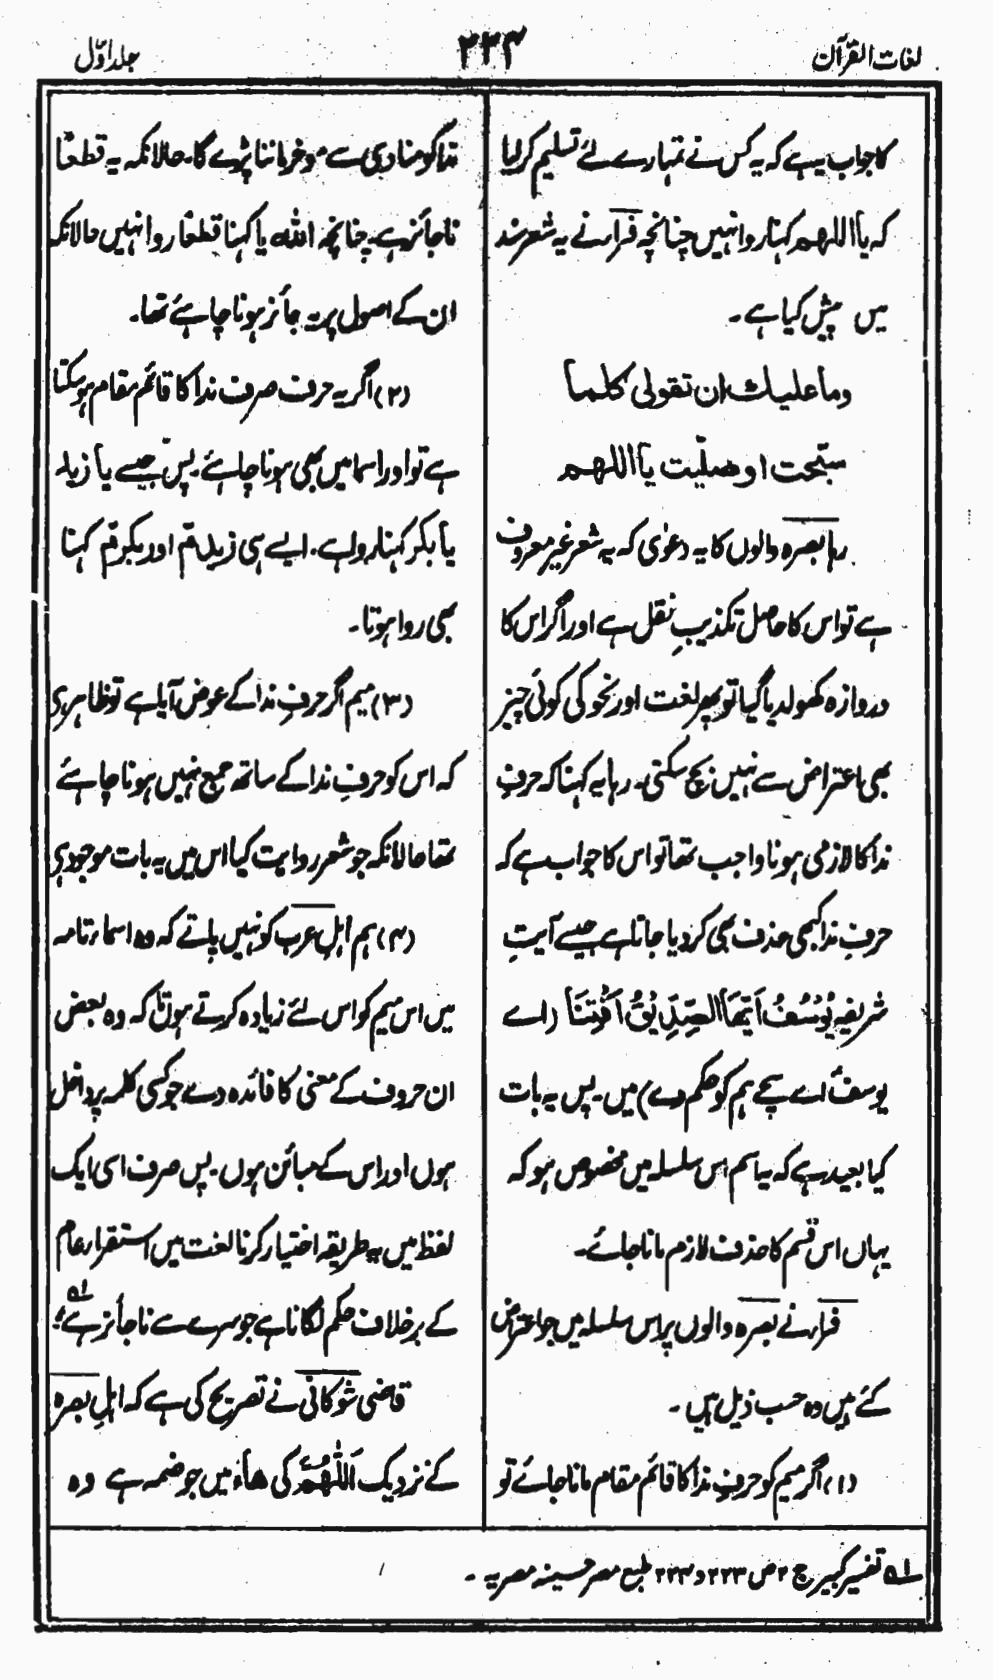 لغات القرآن
۲۳۴
جلد اوّل
کا جواب یہ ہے کہ یہ کس نے تمہارے لئے تسلیم کر لیا
کہ یا اللھم کہنا روا نہیں چنانچہ فرار نے یہ شعر سند
میں پیش کیا ہے۔
وما علیک ان تقولی کلما
سبّحت او صلّیت یا اللھم
رہا بصرہ والوں کا یہ دعوٰی کہ یہ شعر غیر معروف
ہے تو اس کا حاصل تکذیبِ نقل ہے اور اگر اس کا
دروازہ کھول دیا گیا تو پھر لغت اور نحو کی کوئی چیز
بھی اعتراض سے نہیں بچ سکتی۔ رہا یہ کہنا کہ حرفِ
ندا کا لازمی ہونا واجب تھا تو اس کا جواب ہے کہ
حرفِ ندا کبھی حذف بھی کر دیا جاتا ہے جیسے آیتِ
شریفہ یُوْسُفُ اَیُّھَا الصِّدِّیْقُ اَفْتِنَا (اے
یوسفؑ اے سچے ہم کو حکم دے) میں۔ پس یہ بات
کیا بعید ہے کہ یہ اسم اس سلسلہ میں مخصوص ہو کہ
یہاں اس قسم کا حذف لازم مانا جائے۔
فرار نے بصرہ والوں پر اس سلسلہ میں جو اعتراض
کئے ہیں وہ حسب ذیل ہیں۔
(۱) اگر میم کو حرفِ ندا کا قائم مقام مانا جائے تو
ندا کو منادیٰ سے موخر ماننا پڑے گا۔ حالانکہ یہ قطعًا
ناجائز ہے۔ چنانچہ اللہ یا کہنا قطعًا روا نہیں حالانکہ
ان کے اصول پر یہ جائز ہونا چاہئے تھا۔
(۲) اگر یہ حرف صرف ندا کا قائم مقام ہو سکتا
ہے تو اور اسما میں بھی ہونا چاہئے۔ پس جیسے یا زید
یا بکر کہنا روا ہے۔ ایسے ہی زیدمّ اور بکرمّ کہنا
بھی روا ہوتا۔
(۳) میم اگر حرفِ ندا کے عوض آیا ہے تو ظاہر ہی
کہ اس کو حرفِ ندا کے ساتھ جمع نہیں ہونا چاہئے
تھا حالانکہ جو شعر روایت کیا اس میں یہ بات موجود ہی
(۴) ہم اہلِ عرب کو نہیں پاتے کہ وہ اسماء تامہ
میں اس میم کو اس لئے زیادہ کرتے ہوں تا کہ وہ بعض
ان حروف کے معنی کا فائدہ دے جو کسی کلمہ پر داخل
ہوں اور اس کے مبائن ہوں۔ پس صرف اسی ایک
لفظ میں یہ طریقہ اختیار کرنا لغت میں استقرار عام
کے برخلاف حکم لگانا ہے جو سرے سے ناجائز ہے؛ لـه
قاضی شوکانی نے تصریح کی ہے کہ اہلِ بصرہ
کے نزدیک اَللّٰھُمَّ کی ھاء میں جو ضمہ ہے وہ
لـه تفسیر کبیر ج ۲ ص ۲۲۳ و ۲۲۴ طبع مصر حسینیہ مصریہ۔